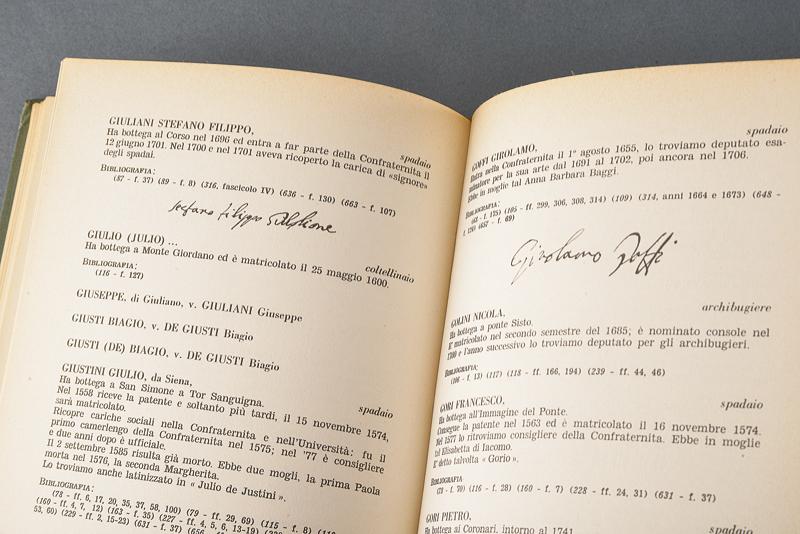 GIULIANI STEFANO FILIPPO,
spadaio
Ha bottega al Corso nel 1696 ed entra a far parte della Confraternita il
12 giugno 1701. Nel 1700 e nel 1701 aveva ricoperto la carica di «signore»
degli spadai.
BIBLIOGRAFIA:
(87 - f. 37) (89 - f. 8) (316, fascicolo IV) (636 - f. 130) (663 - f. 107)
Stefano Filippo
GIULIO (JULIO) ...
coltellinaio
Ha bottega a Monte Giordano ed è matricolato il 25 maggio 1600.
BIBLIOGRAFIA:
(116 - f. 127)
GIUSEPPE, di Giuliano, v. GIULIANI Giuseppe
GIUSTI BIAGIO, v. DE GIUSTI Biagio
GIUSTI (DE) BIAGIO, v. DE GIUSTI Biagio
GIUSTINI GIULIO, da Siena,
spadaio
Ha bottega a San Simone a Tor Sanguigna.
Nel 1558 riceve la patente e soltanto più tardi, il 15 novembre 1574,
sarà matricolato.
Ricopre cariche sociali nella Confraternita e nell'Università: fu il
primo camerlengo della Confraternita nel 1575; nel '77 è consigliere
e due anni dopo è ufficiale.
Il 2 settembre 1585 risulta già morto. Ebbe due mogli, la prima Paola
morta nel 1576, la seconda Margherita.
Lo troviamo anche latinizzato in « Julio de Justini ».
BIBLIOGRAFIA:
(78 - ff. 6, 17, 20, 35, 37, 58, 100) (79 - ff. 29, 69) (115 - f. 8)
(160 - ff. 4, 7, 12) (163 - f. 35) (227 - ff. 4, 5, 6, 13-19)
53, 60) (229 - ff. 2, 15-23) (631 - f. 37)
GOFFI GIROLAMO,
spadaio
Entra nella Confraternita il 1° agosto 1655, lo troviamo deputato esa-
minatore per la sua arte dal 1691 al 1702, poi ancora nel 1706.
Ebbe in moglie tal Anna Barbara Baggi.
BIBLIOGRAFIA:
(63 - f. 175) (105 - ff. 299, 306, 308, 314) (109) (314, anni 1664 e 1673) (648 -
(657 - f. 69)
Girolamo Goffi
GOLINI NICOLA,
archibugiere
Ha bottega a ponte Sisto.
E' matricolato nel secondo semestre del 1685; è nominato console nel
1700 e l'anno successivo lo troviamo deputato per gli archibugieri.
BIBLIOGRAFIA:
(106 - f. 13) (117) (118 - ff. 166, 194) (239 - ff. 44, 46)
GORI FRANCESCO,
spadaio
Ha bottega all'Immagine del Ponte.
Consegue la patente nel 1563 ed è matricolato il 16 novembre 1574.
Nel 1577 lo ritroviamo consigliere della Confraternita. Ebbe in moglie
tal Elisabetta di Iacomo.
E' detto talvolta « Gorio ».
BIBLIOGRAFIA
(78 - f. 70) (116 - f. 28) (160 - f. 7) (228 - ff. 24, 31) (631 - f. 37)
GORI PIETRO,
spadaio
Ha bottega ai Coronari, intorno al 1741.